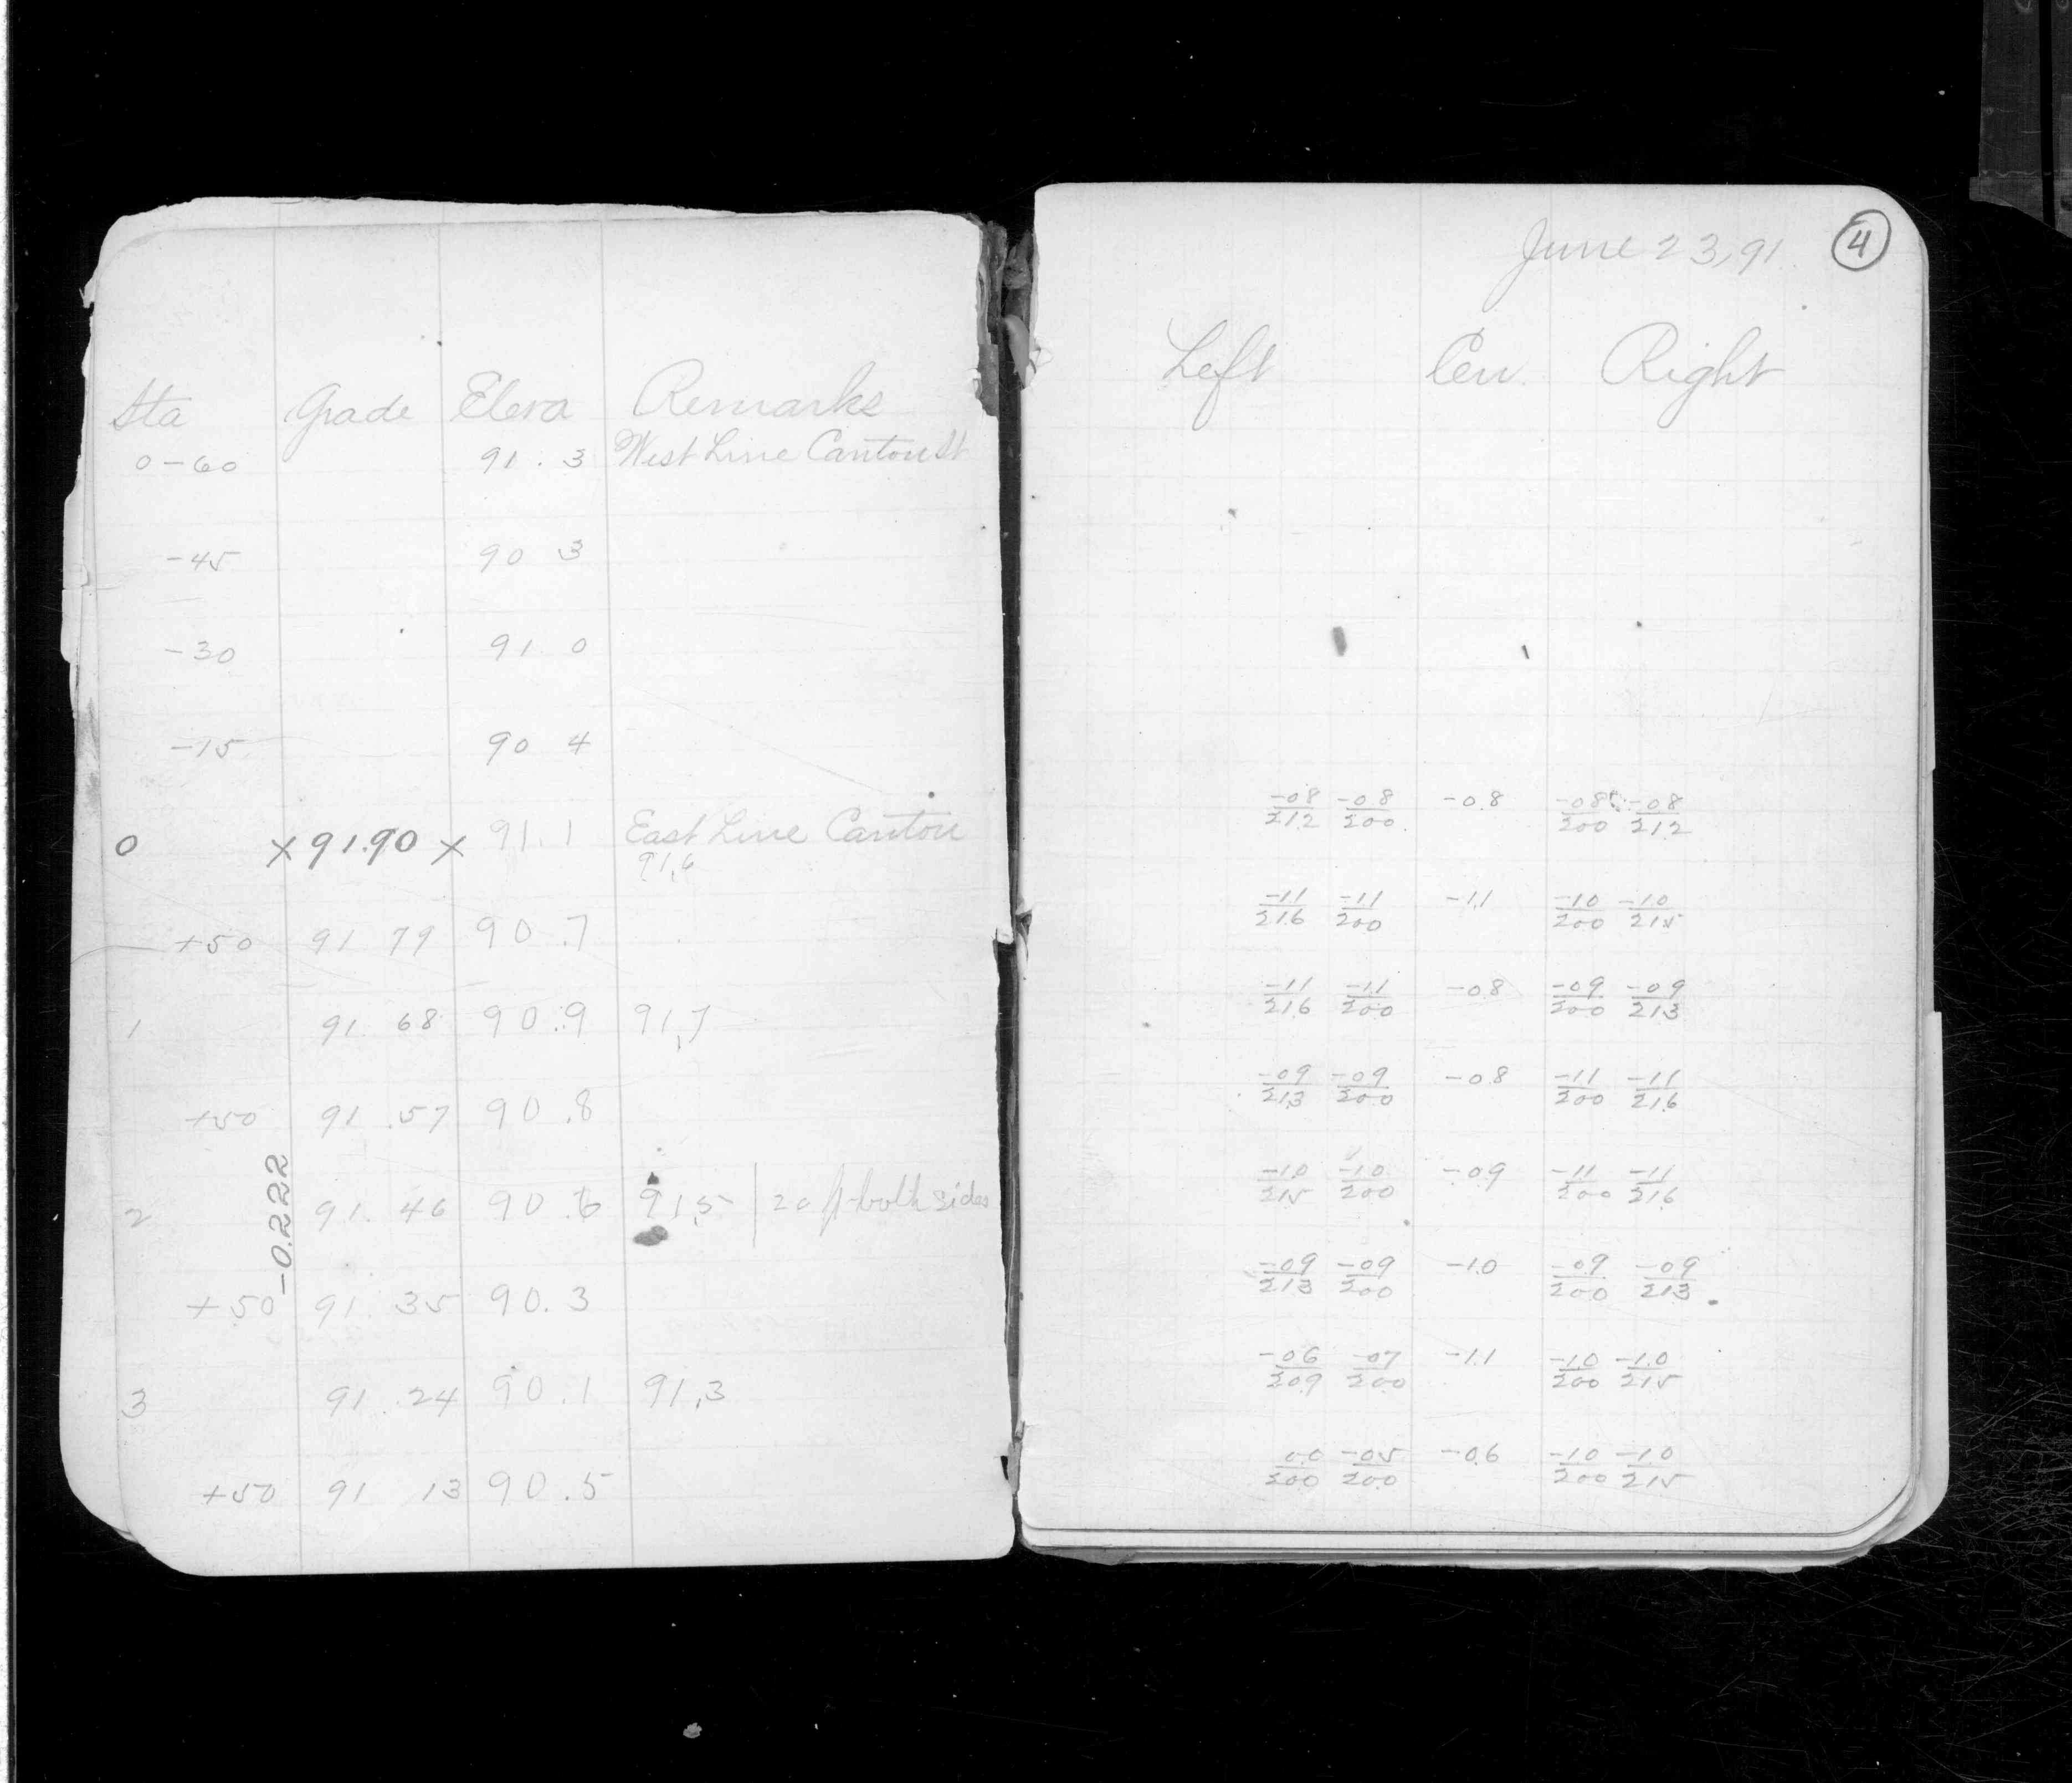 Sta Grade Eleva Remarks
0-60 91.3 West Line Canton St
-45 90 3
-30 91 0
-15 90 4
0 x 91.90 x 91.1 East Line Canton
91.6
+50 91 79 90.7
1 91.68 90.9 91.7
+50 91.57 90.8
2 91.46 90.6 91.5 | 20 ft both sides
-0.222
+50 91.35 90.3
3 91.24 90.1 91.3
+50 91 13 90.5
June 23, 91 4
Left Cen Right
-0.8/21.2 -0.8/20.0 -0.8 -0.8/20.0 -0.8/21.2
-1.1/21.6 -1.1/20.0 -1.1 -1.0/20.0 -1.0/21.5
-1.1/21.6 -1.1/20.0 -0.8 -0.9/20.0 -0.9/21.3
-0.9/21.3 -0.9/20.0 -0.8 -1.1/20.0 -1.1/21.6
-1.0/21.5 -1.0/20.0 -0.9 -1.1/20.0 -1.1/21.6
-0.9/21.3 -0.9/20.0 -1.0 -0.9/20.0 -0.9/21.3
-0.6/20.9 -0.7/20.0 -1.1 -1.0/20.0 -1.0/21.5
0.0/20.0 -0.5/20.0 -0.6 -1.0/20.0 -1.0/21.5